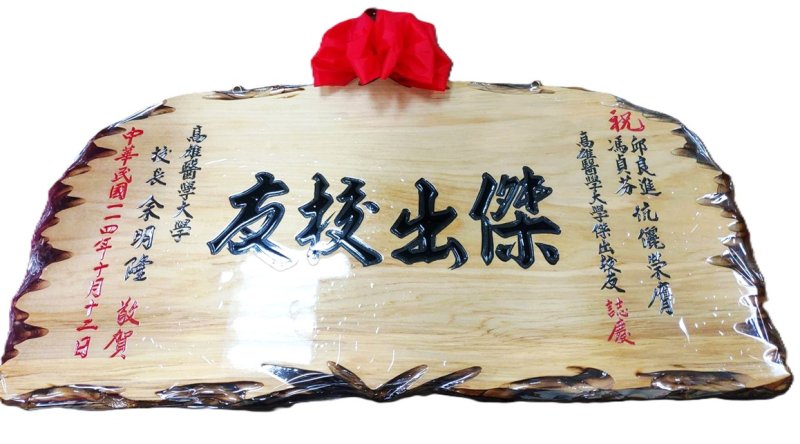 祝 邱良進 馮貞芬 伉儷榮膺
高雄醫學大學傑出校友 誌慶
傑出校友
高雄醫學大學
校長 余明隆 敬賀
中華民國一一四年十月十二日